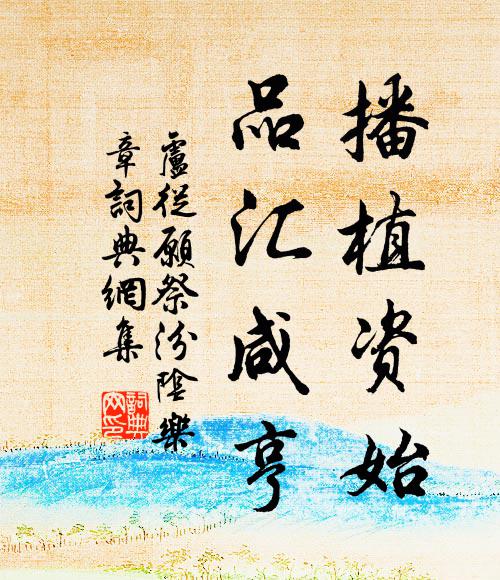 播植资始
品汇咸亨
盧従願祭汾陰樂
章詞典網集
詞典網印